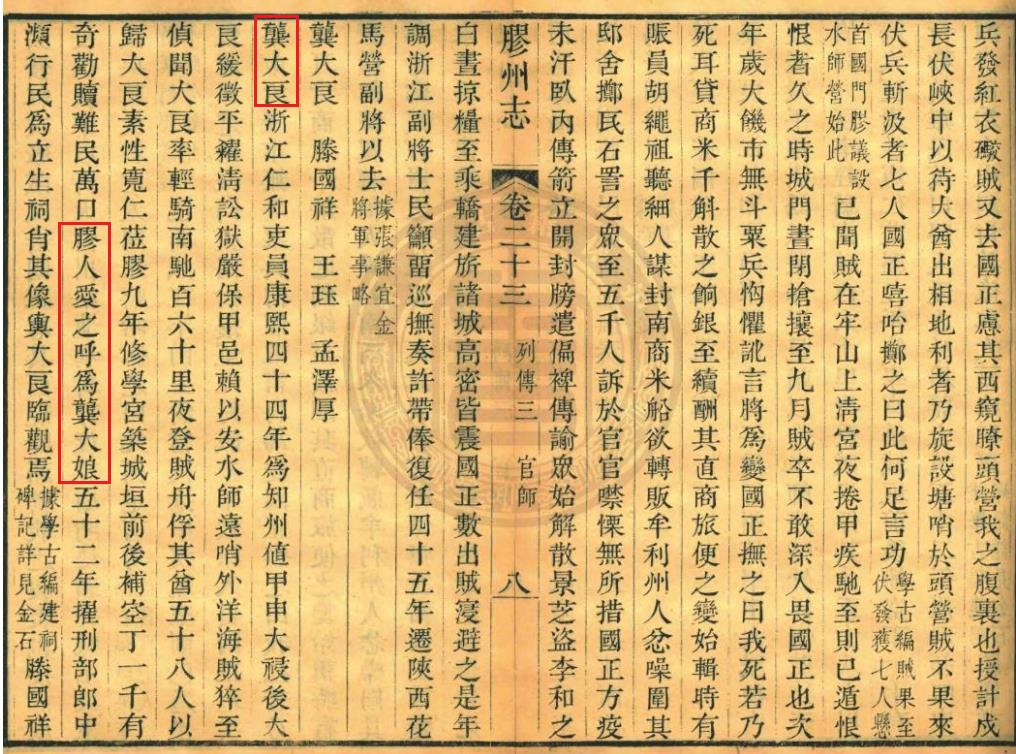 兵發紅衣礮賊又去國正慮其西窺瞭頭營我之腹裏也授計戍
長伏峽中以待大酋出相地利者乃旋設塘哨於頭營賊不果來
伏兵斬汲者七人國正嘻咍擲之曰此何足言功學古編賊果至伏發獲七人懸
首國門膠議設水師營始此已聞賊在牢山上清宮夜捲甲疾馳至則已遁恨
恨者久之時城門晝閉搶攘至九月賊卒不敢深入畏國正也次
年歲大饑市無斗粟兵恟懼訛言將爲變國正撫之曰我死若乃
死耳貸商米千斛散之餉銀至續酬其直商旅便之變始輯時有
賬員胡繩祖聽細人謀封南商米船欲轉販牟利州人忿噪圍其
邸舍擲瓦石詈之眾至五千人訴於官官噤慄無所措國正方疫
未汗臥內傳箭立開封牓遣偏裨傳諭眾始解散景芝盜李和之
膠州志 卷二十三 列傳三 官師 八
白晝掠糧至乘轎建旂諸城高密皆震國正數出賊寖避之是年
調浙江副將士民籲畱巡撫奏許帶俸復任四十五年遷陝西花
馬營副將以去據張謙宜金將軍事略
龔大良 滕國祥 王珏 孟澤厚
龔大良浙江仁和吏員康熙四十四年爲知州値甲申大祲後大
良緩徵平糶清訟獄嚴保甲邑賴以安水師遠哨外洋海賊猝至
偵聞大良率輕騎南馳百六十里夜登賊舟俘其酋五十八人以
歸大良素性寬仁莅膠九年修學宮築城垣前後補空丁一千有
奇勸贖難民萬口膠人愛之呼爲龔大娘五十二年擢刑部郎中
瀕行民爲立生祠肖其像輿大良臨觀焉據學古編建祠碑記詳見金石 滕國祥